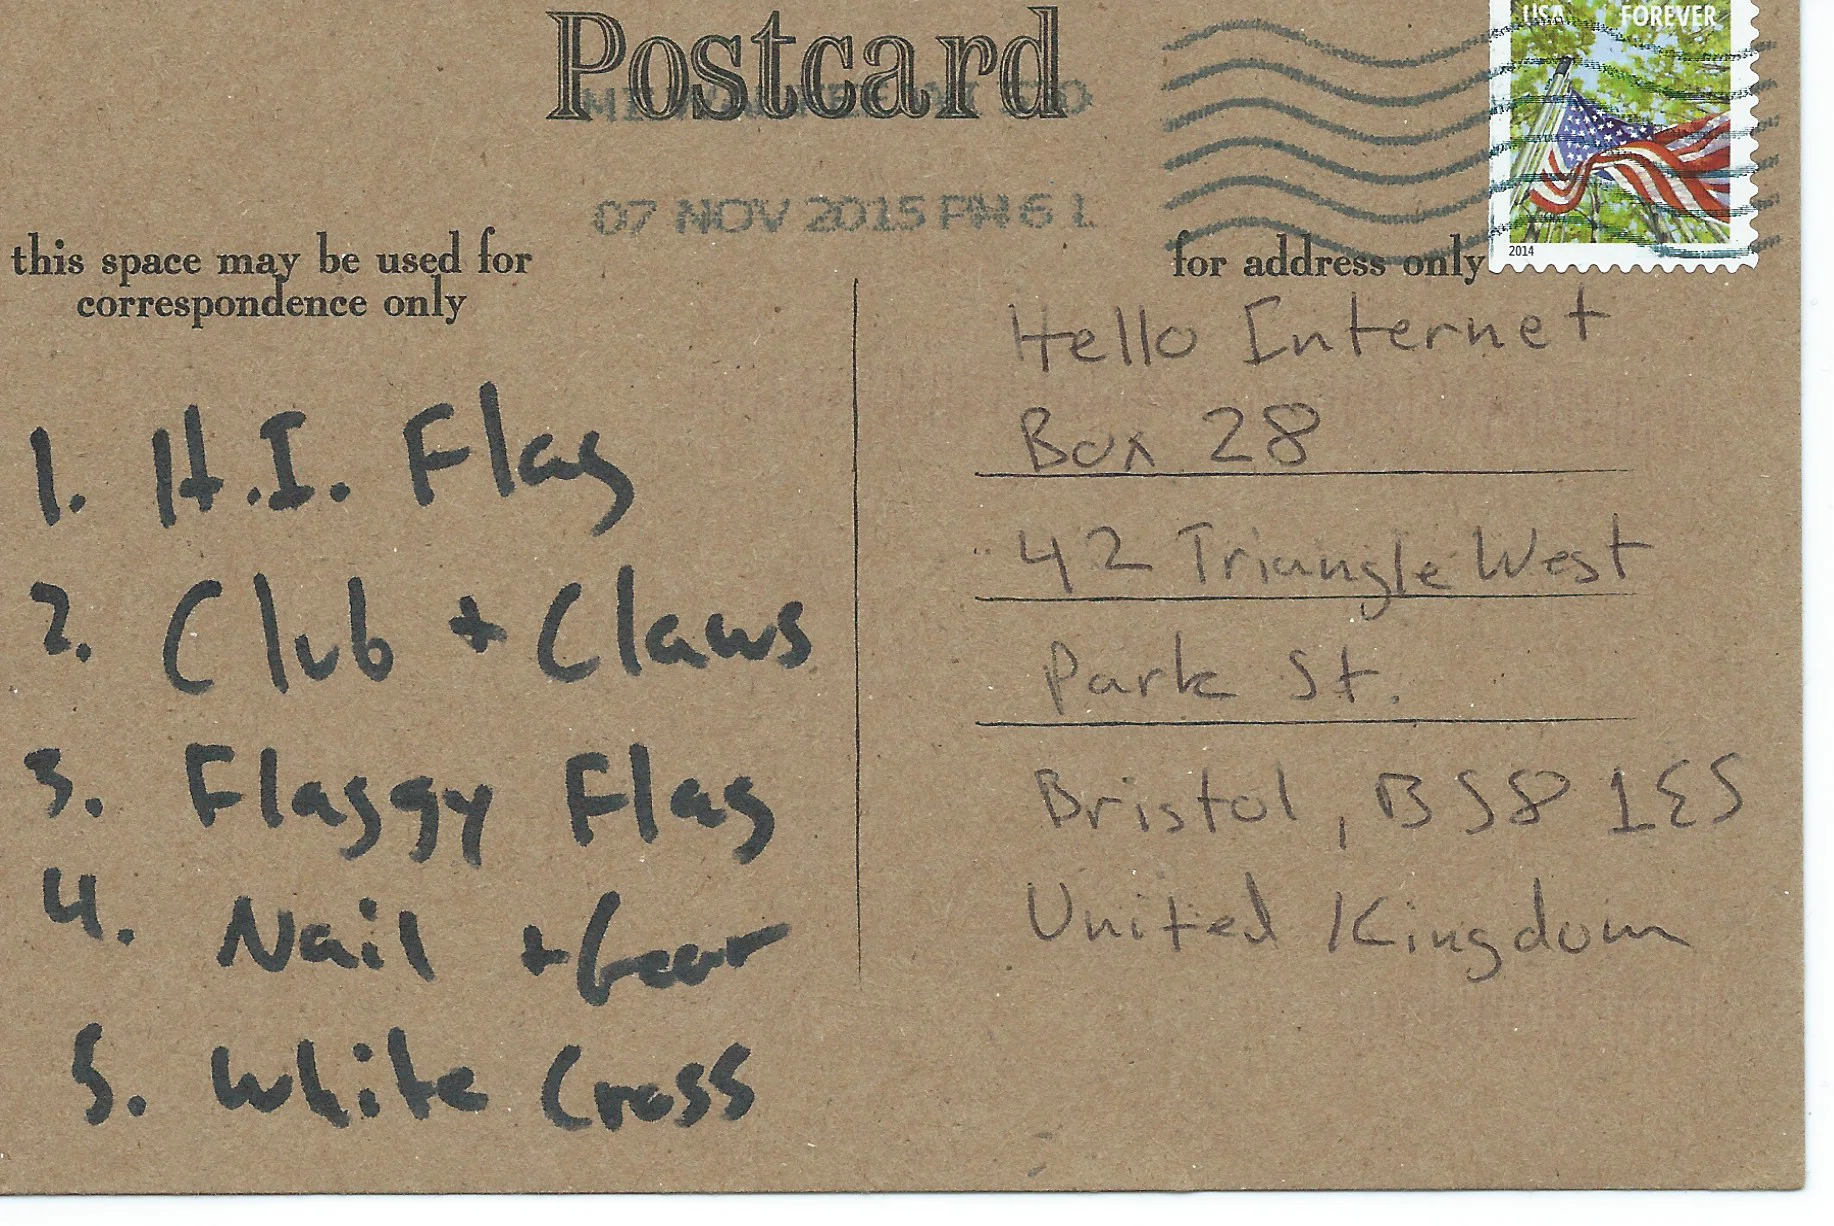 Postcard
07 NOV 2015 PM 6 L
USA FOREVER
2014
this space may be used for
correspondence only
for address only
1. H.I. Flag
2. Club + Claws
3. Flaggy Flag
4. Nail + Gear
5. White Cross
Hello Internet
Box 28
42 Triangle West
Park St.
Bristol, BS8 1ES
United Kingdom